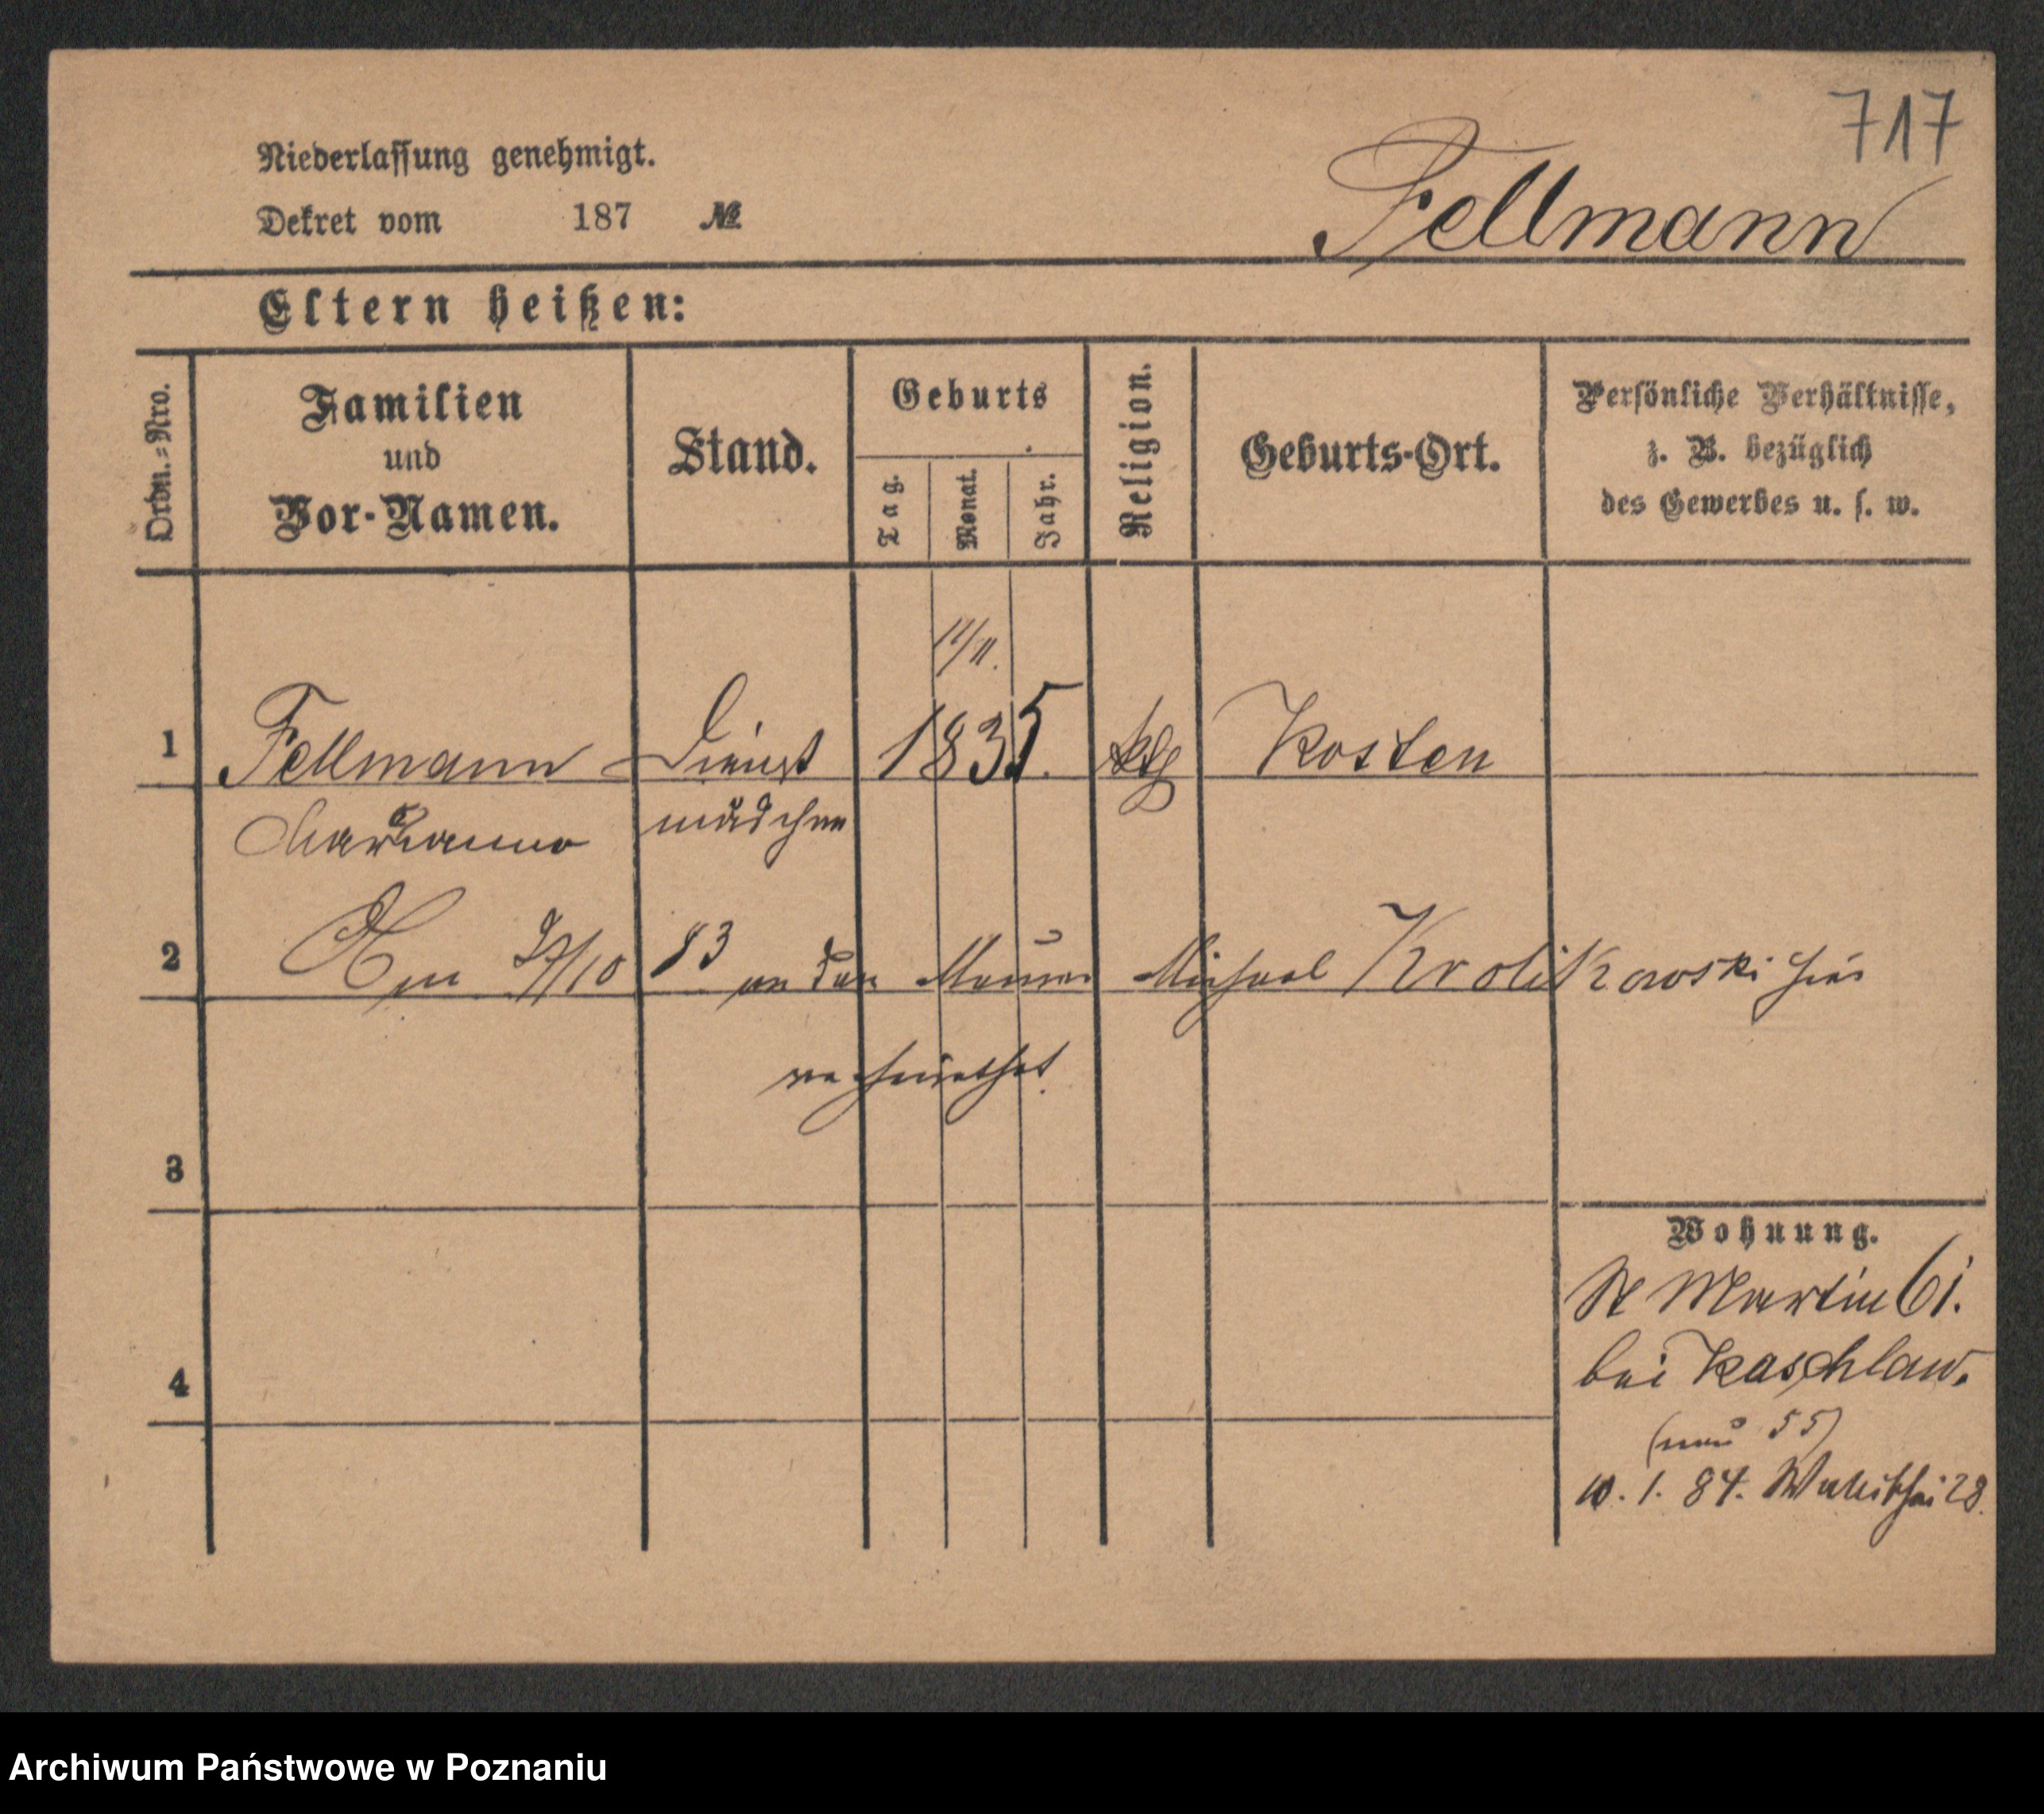 717
Niederlassung genehmigt.
Dekret vom 187 №
Fellmann
Eltern heißen:
Ordn.=Nro.
Familien
und
Vor-Namen.
Stand.
Geburts
Tag.
Monat.
Jahr.
Religion.
Geburts-Ort.
Persönliche Verhältnisse,
z. B. bezüglich
des Gewerbes u. s. w.
11/11.
1 Fellmann Dienst 1835. ktl Kosten
Marianna mädchen
2 Am /10 83 an den Maurer Michael Krolikowski hier
verheirathet.
3
Wohnung.
St Martin 61.
bei Kaschlaw.
4
(neu 55)
10. 1. 84. 28.
Archiwum Państwowe w Poznaniu